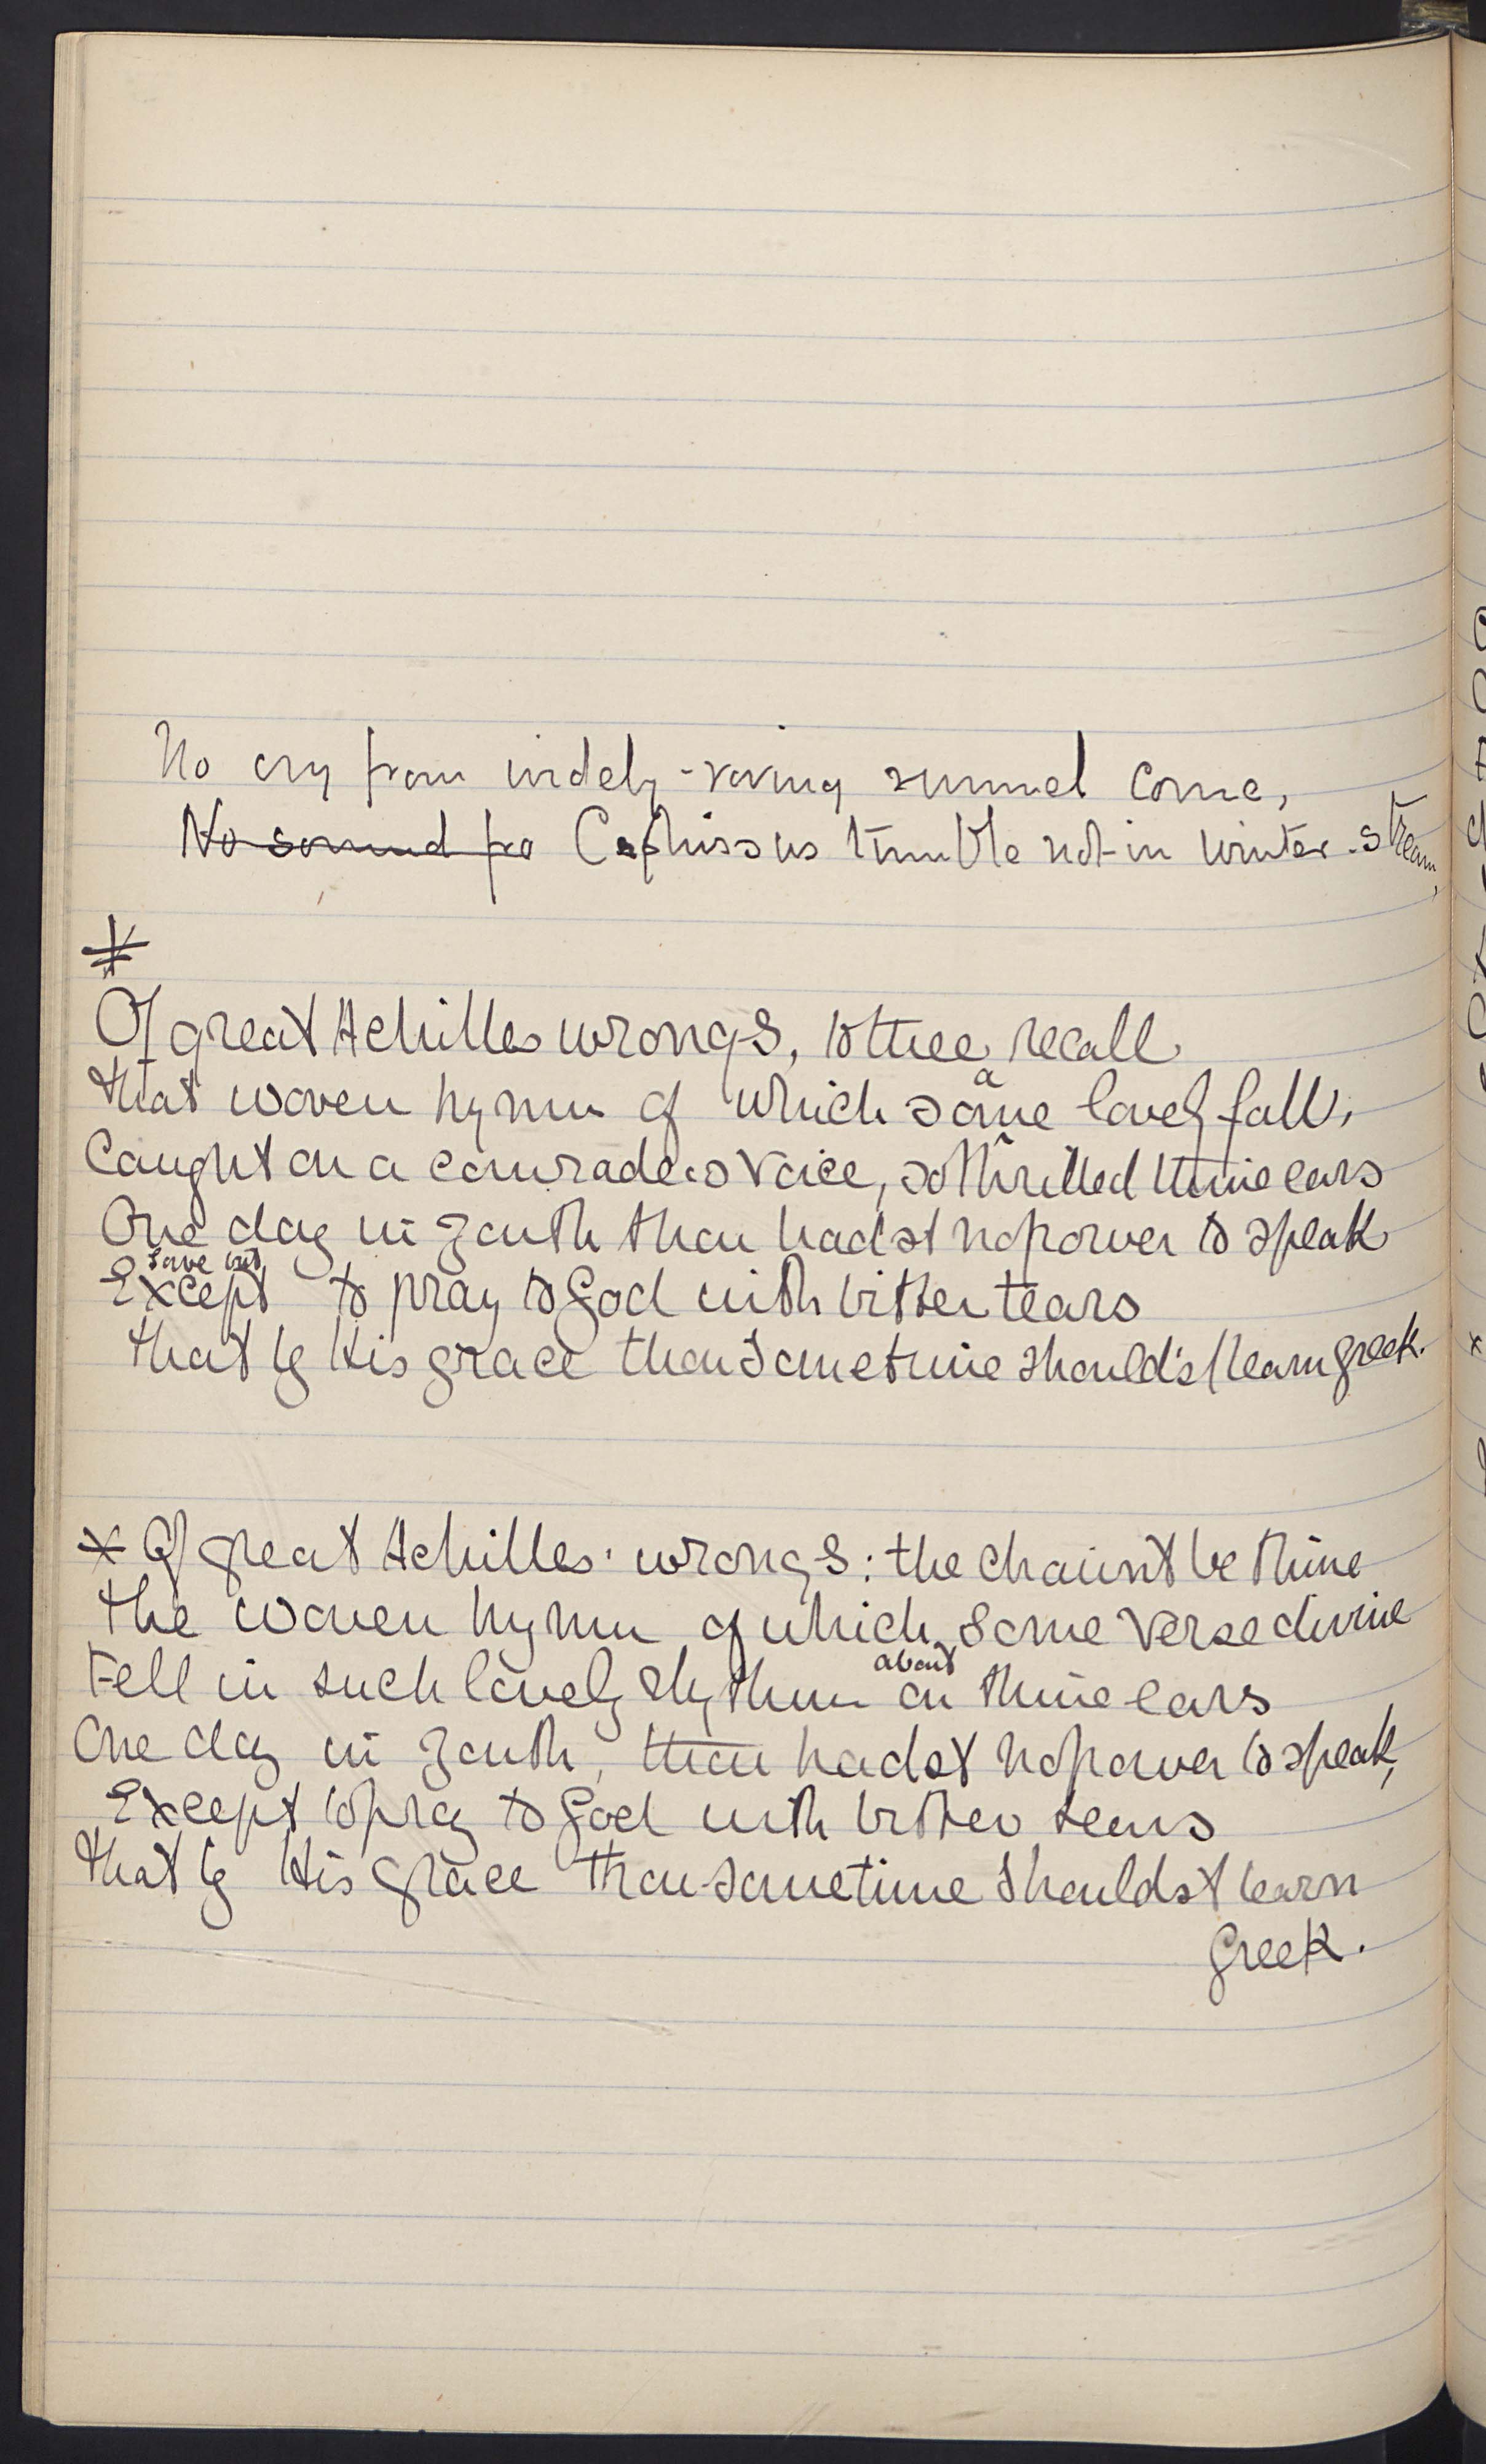 No cry from widely-roving runnel come,
No sound fro Cephissus tumble not in winter-stream,
*
Of great Achilles wrongs, to thee recall
that woven hymn of which some a lovely fall,
Caught on a comrade's voice, so thrilled thine ears
One day in youth thou hadst no power to speak
save but
Except to pray to God with bitter tears
that by His grace thou sometime should'st learn greek.
* Of great Achilles' wrongs: the chaunt be thine
the woven hymn of which some verse divine
Fell in such lovely rhythm on about thine ears
One day in youth, thou hadst no power to speak,
Except to pray to God with bitter tears
that by His grace thou sometime shouldst learn
greek.